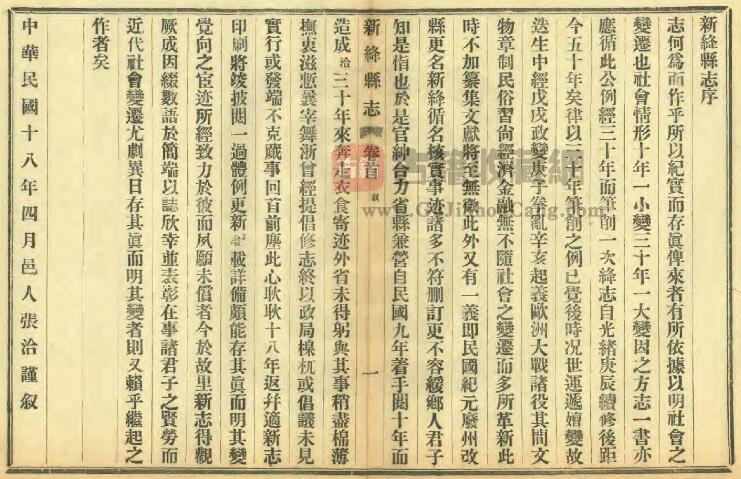 新絳縣志序
志何爲而作乎所以紀實而存眞俾來者有所依據以明社會之
變遷也社會情形十年一小變三十年一大變因之方志一書亦
應循此公例經三十年而筆削一次絳志自光緒庚辰續修後距
今五十年矣律以三十年筆削之例已覺後時况世運遞嬗變故
迭生中經戊戌政變庚子拳亂辛亥起義歐洲大戰諸役其間文
物章制民俗習尙經濟金融無不隨社會之變遷而多所革新此
時不加纂集文獻將屯無徵此外又有一義即民國紀元廢州改
縣更名新絳循名核實事迹諸多不符刪訂更不容緩鄉人君子
知是惜也於是官紳合力省縣兼營自民國九年着手閱十年而
新絳縣志 卷首 敘 一
造成洽三十年來奔走衣食寄迹外省未得躬與其事稍盡棉薄
撫衷滋慙曩宰舞浙曾經提倡修志終以政局槔杌或倡議未見
實行或發端不克蕆事回首前塵此心耿耿十八年返幷適新志
印刷將竣披閱一過體例更新記載詳備頗能存其眞而明其變
覺向之宦迹所經致力於彼而夙願未償者今於故里新志得觀
厥成因綴數語於簡端以誌欣幸並表彰在事諸君子之賢勞而
近代社會變遷尤劇異日存其眞而明其變者則又賴乎繼起之
作者矣
中華民國十八年四月邑人張洽謹叙
古籍收藏網